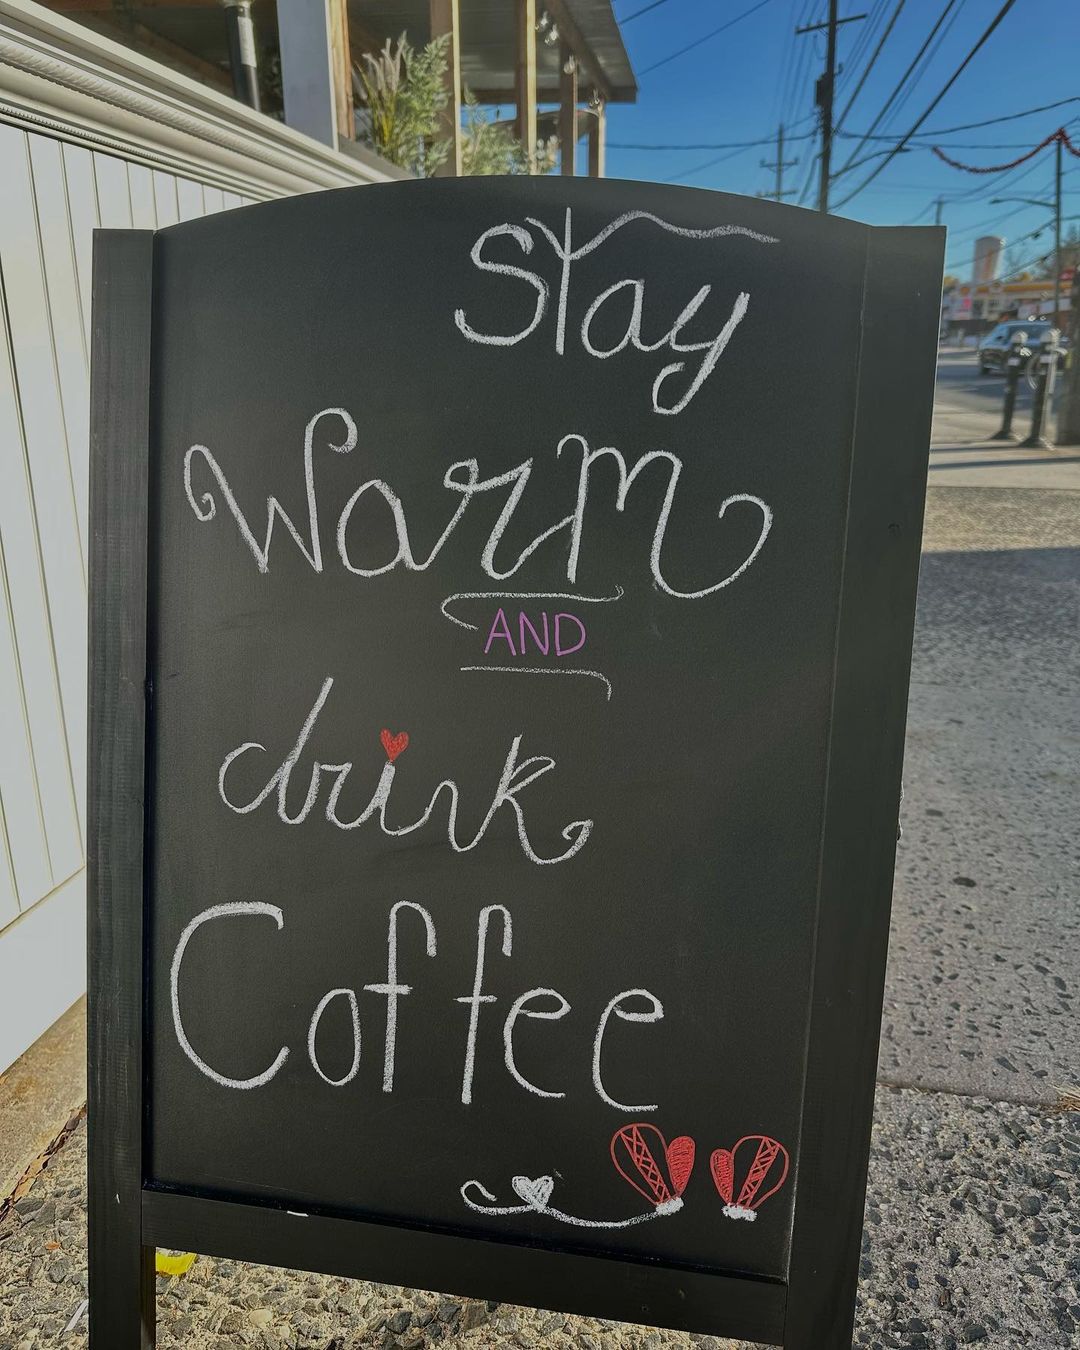 Stay
Warm
AND
drink
Coffee